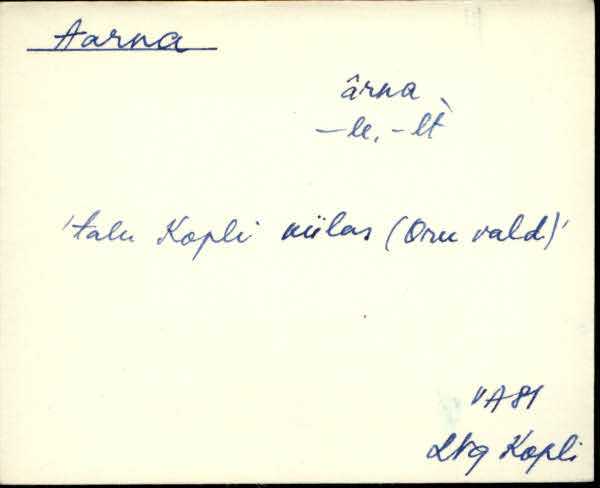 Aarna
ârna
-le, -lt̀
'talu Kopli külas (Oru vald)'
VA 81
Lvg Kopli